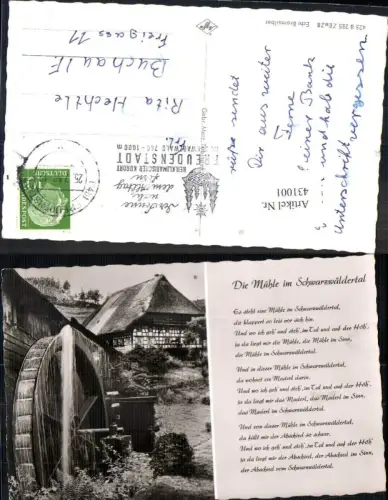 429 B 395 ZEaZB Echt Bromsilber
Rita Hechtle
Buchau / F
Freigass 11
der Sonne
nahe
dem Alltag
fern
FREUDENSTADT
HEILKLIMATISCHER KURORT
SCHWARZWALD 740 - 1000 m
DEUTSCHE
BUNDESPOST
10
Agfa
Dir aus weiter
Ferne
seiner Bank
und hab die
Unterschrift vergessen
Artikel Nr.
431001
Die Mühle im Schwarzwäldertal
Es steht eine Mühle im Schwarzwäldertal,
die klappert so leis vor sich hin.
Und wo ich geh' und steh', im Tal und auf der Höh',
ja da liegt mir die Mühle, die Mühle im Sinn,
die Mühle im Schwarzwäldertal.
Und in dieser Mühle im Schwarzwäldertal,
da wohnet ein Maderl darin.
Und wo ich geh' und steh', im Tal und auf der Höh',
ja da liegt mir das Maderl, das Maderl im Sinn,
das Maderl im Schwarzwäldertal.
Und von dieser Mühle im Schwarzwäldertal,
da fällt mir der Abschied so schwer.
Und wo ich geh' und steh', im Tal und auf der Höh',
ja da liegt mir der Abschied, der Abschied im Sinn,
der Abschied vom Schwarzwäldertal.